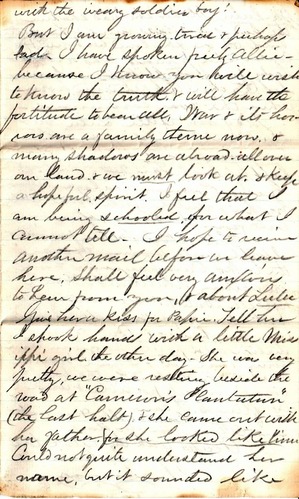 with the weary soldier boy!
But I am growing tired & perhaps
sad. I have spoken freely Allie
because I know you will wish
to know the truth & will have the
fortitude to bear all, War & its hor-
rors are a family theme now, &
many shadows are abroad all over
our land. & we must look at, & keep
a hopeful spirit. I feel that I
am being schooled for what I
cannot tell. I hope to receive
another mail before we leave
here, shall feel very anxious
to hear from you, & about Lulie
Give her a kiss for Papa. Tell her
I shook hands with a little Miss-
ippi girl the other day. She was very
pretty, we were resting beside the
road at "Cameron's Plantation"
(the last halt) & she came out with
her father, for she looked like him
Could not quite understand her
name, but it sounded like